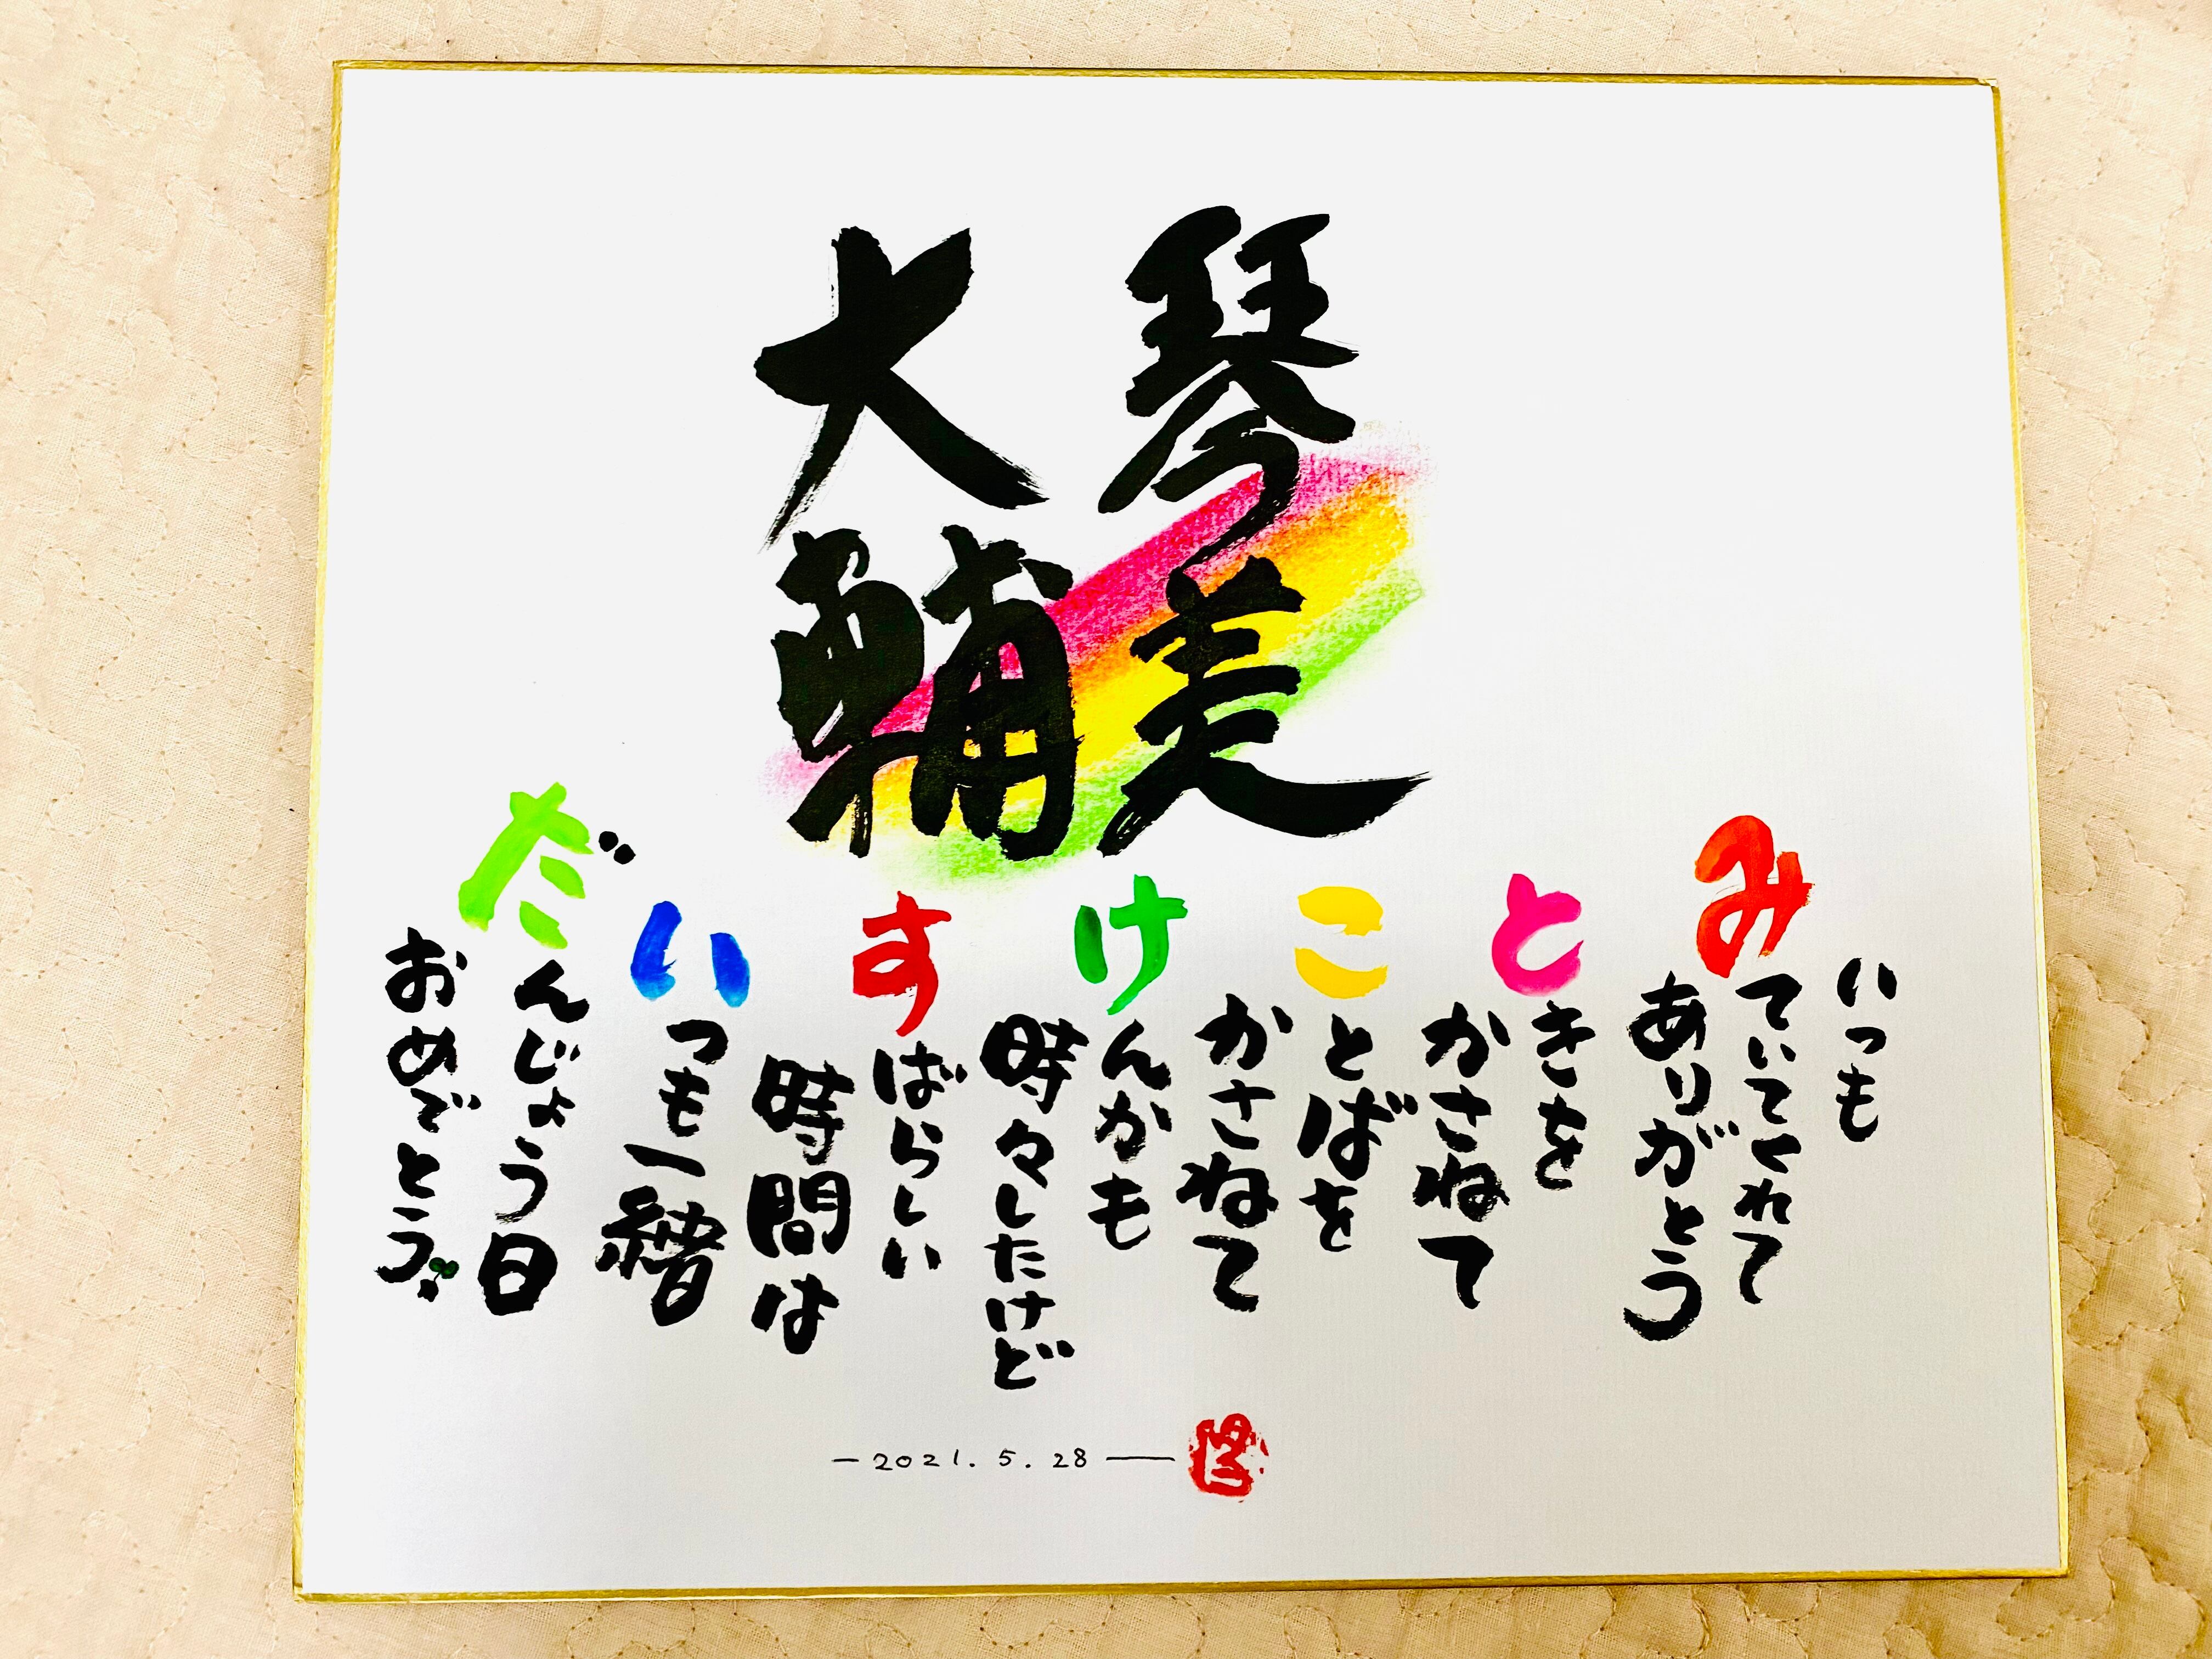 琴美
大輔
いつも
みていてくれて
ありがとう
ときを
かさねて
ことばを
かさねて
けんかも
時々したけど
すばらしい
時間は
いつも一緒
だんじょう日
おめでとう
－2021.5.28－